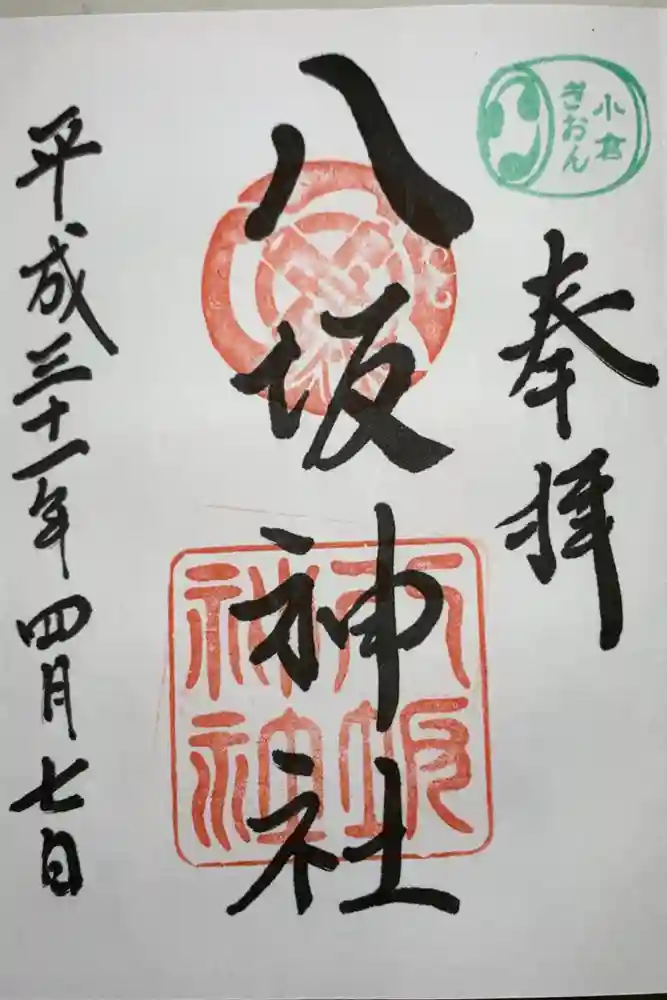 小倉
ぎおん
奉拝
八坂神社
八坂
神社
平成三十一年四月七日